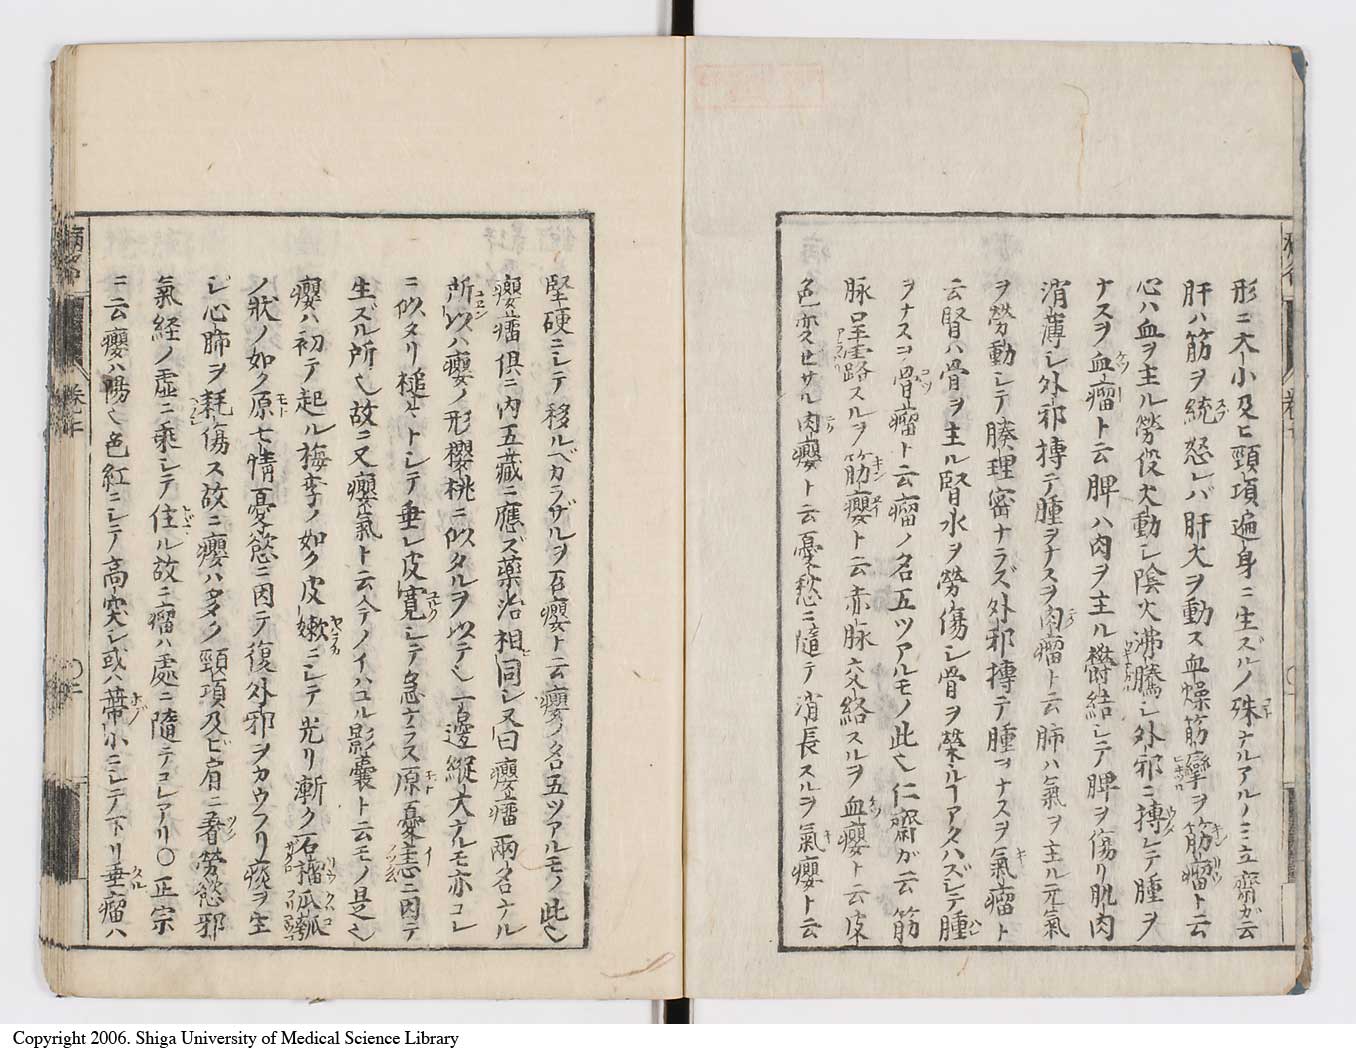 形ニ大小及ヒ頸項遍身ニ生ズルノ殊ナルアルノミ立齋ガ云
肝ハ筋ヲ統怒レバ肝火ヲ動ス血燥筋攣ヲ筋瘤ト云
心ハ血ヲ主ル勞役火動シ陰火沸騰シ外邪ニ搏レテ腫ヲ
ナスヲ血瘤ト云脾ハ肉ヲ主ル欝結シテ脾ヲ傷リ肌肉
消薄シ外邪搏テ腫ヲナスヲ肉瘤ト云肺ハ氣ヲ主ル元氣
ヲ勞動シテ腠理密ナラズ外邪搏テ腫ヲナスヲ氣瘤ト
云腎ハ骨ヲ主ル腎水ヲ勞傷シ骨ヲ榮ルヿアタハズシテ腫
ヲナスヲ骨瘤ト云瘤ノ名五ツアルモノ此也仁齋ガ云筋
脉呈露スルヲ筋癭ト云赤脉交絡スルヲ血癭ト云皮
色変セサル肉癭ト云憂愁ニ隨テ消長スルヲ氣癭ト云
堅硬ニシテ移ルベカラザルヲ石癭ト云癭ノ名五ツアルモノ此也
癭瘤俱ニ内五藏ニ應ズ藥治相同シ又曰癭瘤兩名ナル
所以ハ癭ノ形櫻桃ニ似タルヲ以テ也一邊縱大ナルモ亦コレ
ニ似タリ槌々トシテ垂レ皮寛シテ急ナラス原憂恚ニ因テ
生ズル所也故ニ又癭氣ト云今ノイハユル影囊ト云モノ是也
癭ハ初テ起ル梅李ノ如ク皮嫩ニシテ光リ漸ク石榴瓜瓠
ノ状ノ如ク原七情憂慾ニ因テ復外邪ヲカウフリ痰ヲ生
シ心肺ヲ耗傷ス故ニ癭ハ多ク頸項及ビ肩ニ着勞慾邪
氣経ノ虚ニ乘シテ住ル故ニ瘤ハ處ニ隨テコレアリ〇正宗
ニ云癭ハ陽也色紅ニシテ高突シ或ハ蒂小ニシテ下リ垂瘤ハ